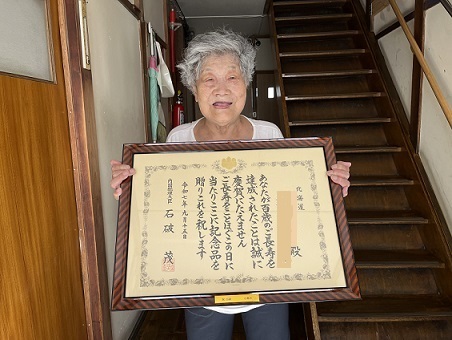 北海道
殿
あなたが百歳のご長寿を
達成されたことは誠に
慶賀にたえません
ご長寿をことほぐこの日に
当たりここに記念品を
贈りこれを祝します
令和七年九月十五日
内閣総理大臣 石破 茂